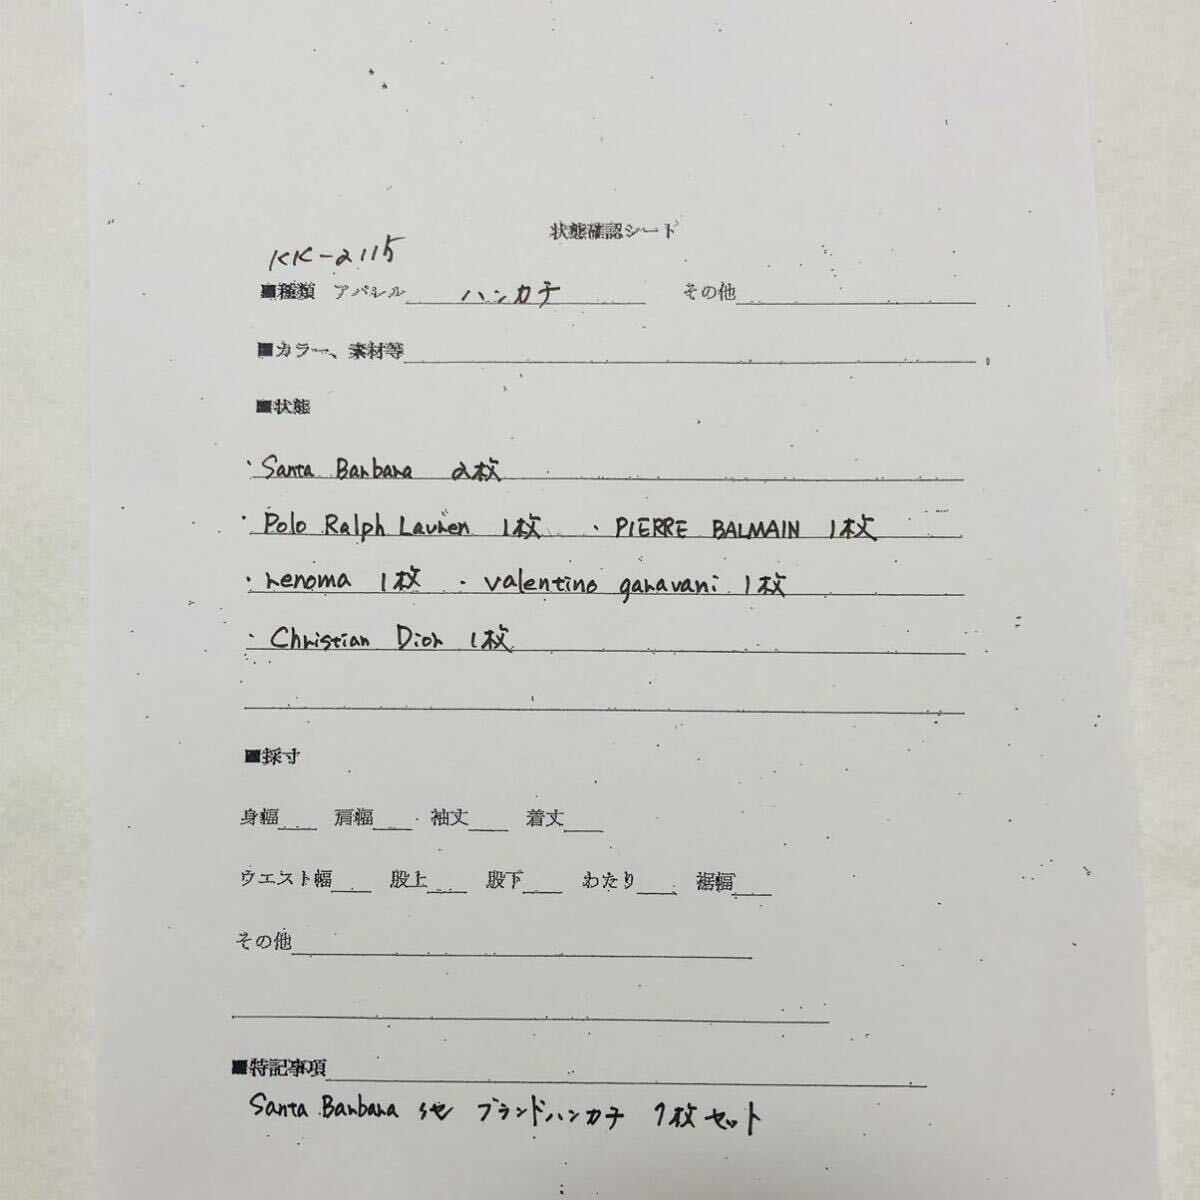 状態確認シート
KK-2115
■種類 アパレル ハンカチ その他
■カラー、素材等
■状態
・Santa Barbara 2枚
・Polo Ralph Lauren 1枚 ・PIERRE BALMAIN 1枚
・renoma 1枚 ・valentino garavani 1枚
・Christian Dior 1枚
■採寸
身幅 肩幅 袖丈 着丈
ウエスト幅 股上 股下 わたり 裾幅
その他
■特記事項
Santa Barbara 他 ブランドハンカチ 7枚セット